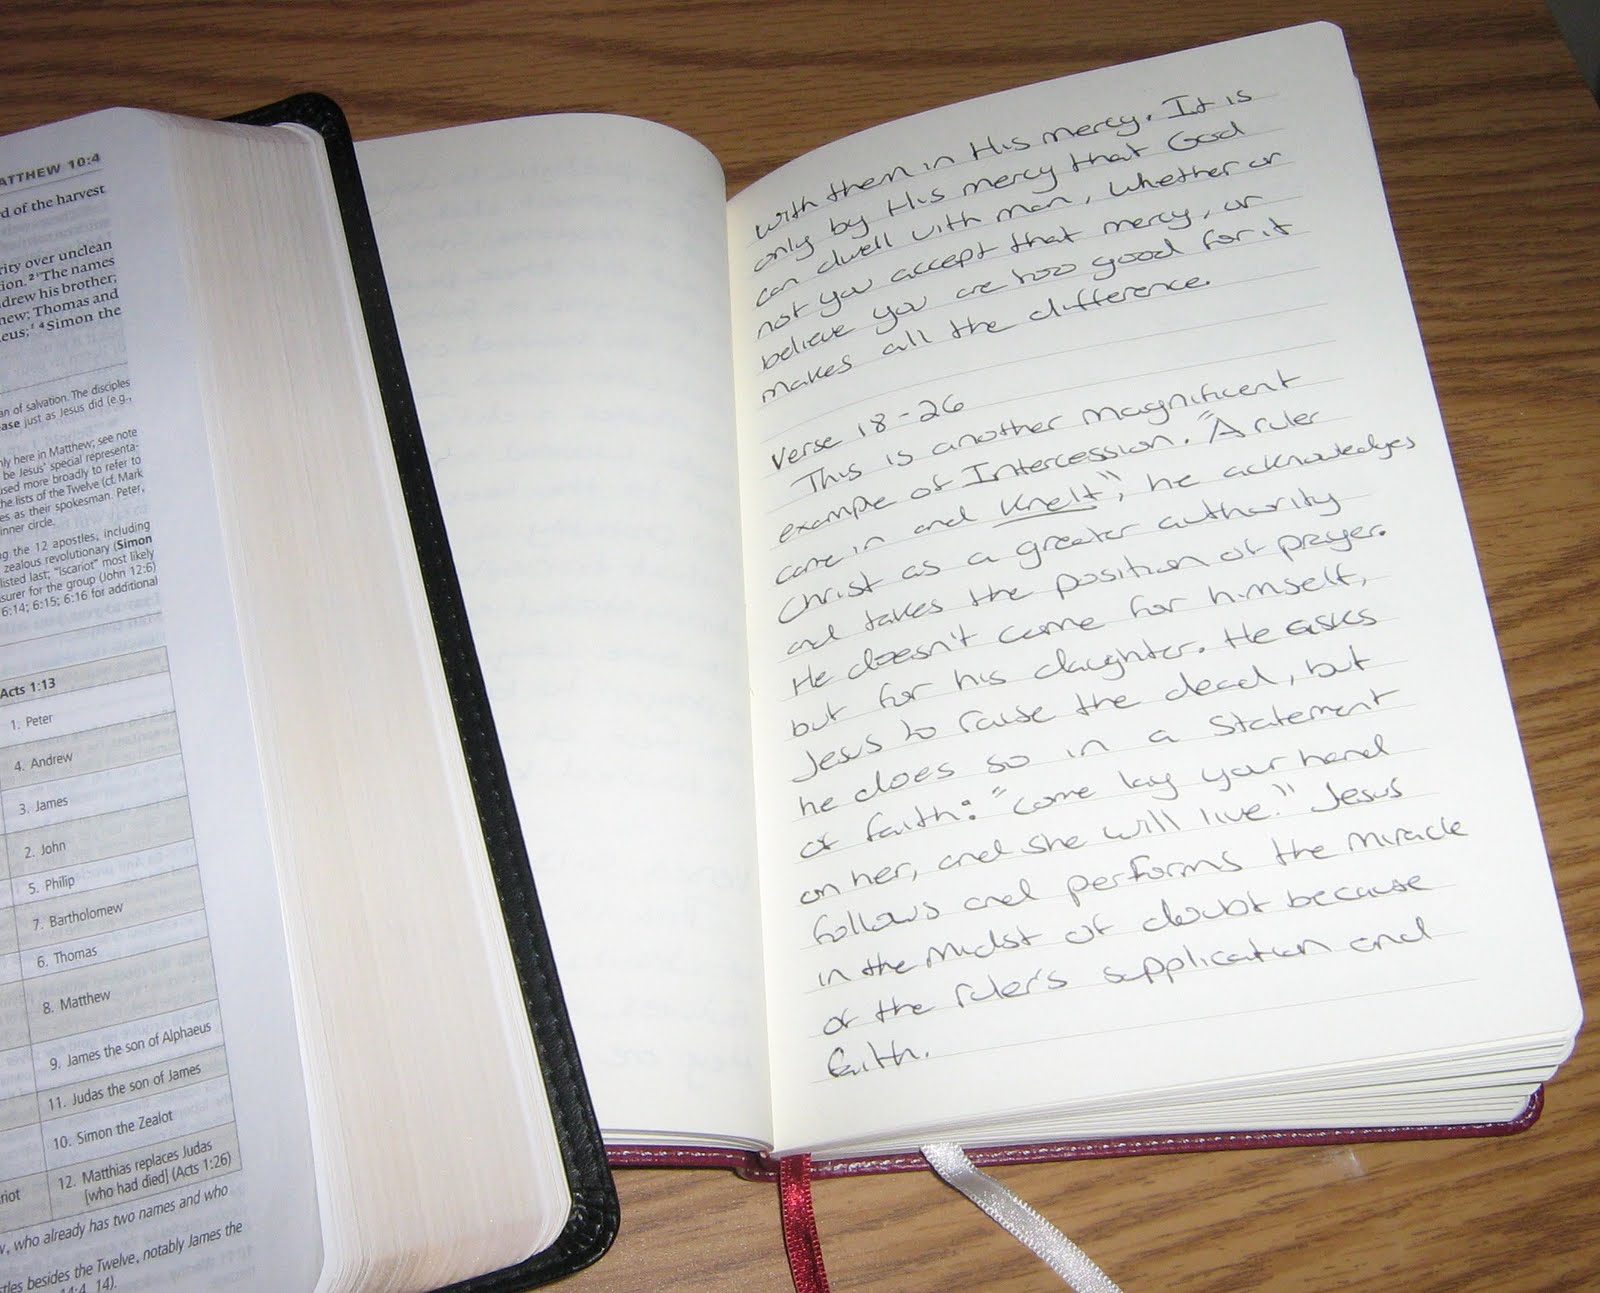 ATTHEW 10:4
rd of the harvest
rity over unclean
ion. 2 The names
drew his brother;
hew; Thomas and
eus; 4 Simon the
an of salvation. The disciples
ease just as Jesus did (e.g.,
nly here in Matthew; see note
be Jesus' special representa-
used more broadly to refer to
the lists of the Twelve (cf. Mark
es as their spokesman. Peter,
inner circle.
ng the 12 apostles, including
zealous revolutionary (Simon
listed last; "Iscariot" most likely
surer for the group (John 12:6)
6:14; 6:15; 6:16 for additional
Acts 1:13
1. Peter
4. Andrew
3. James
2. John
5. Philip
7. Bartholomew
6. Thomas
8. Matthew
9. James the son of Alphaeus
11. Judas the son of James
10. Simon the Zealot
12. Matthias replaces Judas
[who had died] (Acts 1:26)
riot
w, who already has two names and who
stles besides the Twelve, notably James the
14:4, 14).
with them in His mercy. It is
only by His mercy that God
can dwell with man, whether or
not you accept that mercy, or
believe you are too good for it
makes all the difference.
Verse 18-26
This is another magnificent
example of Intercession. "A ruler
came in and Knelt", he acknowledges
Christ as a greater authority
and takes the position of prayer.
He doesn't come for himself,
but for his daughter. He asks
Jesus to raise the dead, but
he does so in a statement
of faith: "come lay your hand
on her, and she will live." Jesus
follows and performs the miracle
in the midst of doubt because
of the ruler's supplication and
faith.